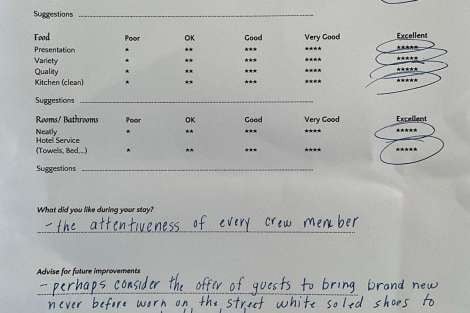 Suggestions
Food Poor OK Good Very Good Excellent
Presentation * ** *** **** *****
Variety * ** *** **** *****
Quality * ** *** **** *****
Kitchen (clean) * ** *** **** *****
Suggestions
Rooms/ Bathrooms Poor OK Good Very Good Excellent
Neatly * ** *** **** *****
Hotel Service
(Towels, Bed...) * ** *** **** *****
Suggestions
What did you like during your stay?
- the attentiveness of every crew member
Advise for future improvements
- perhaps consider the offer of guests to bring brand new
never before worn on the street white soled shoes to